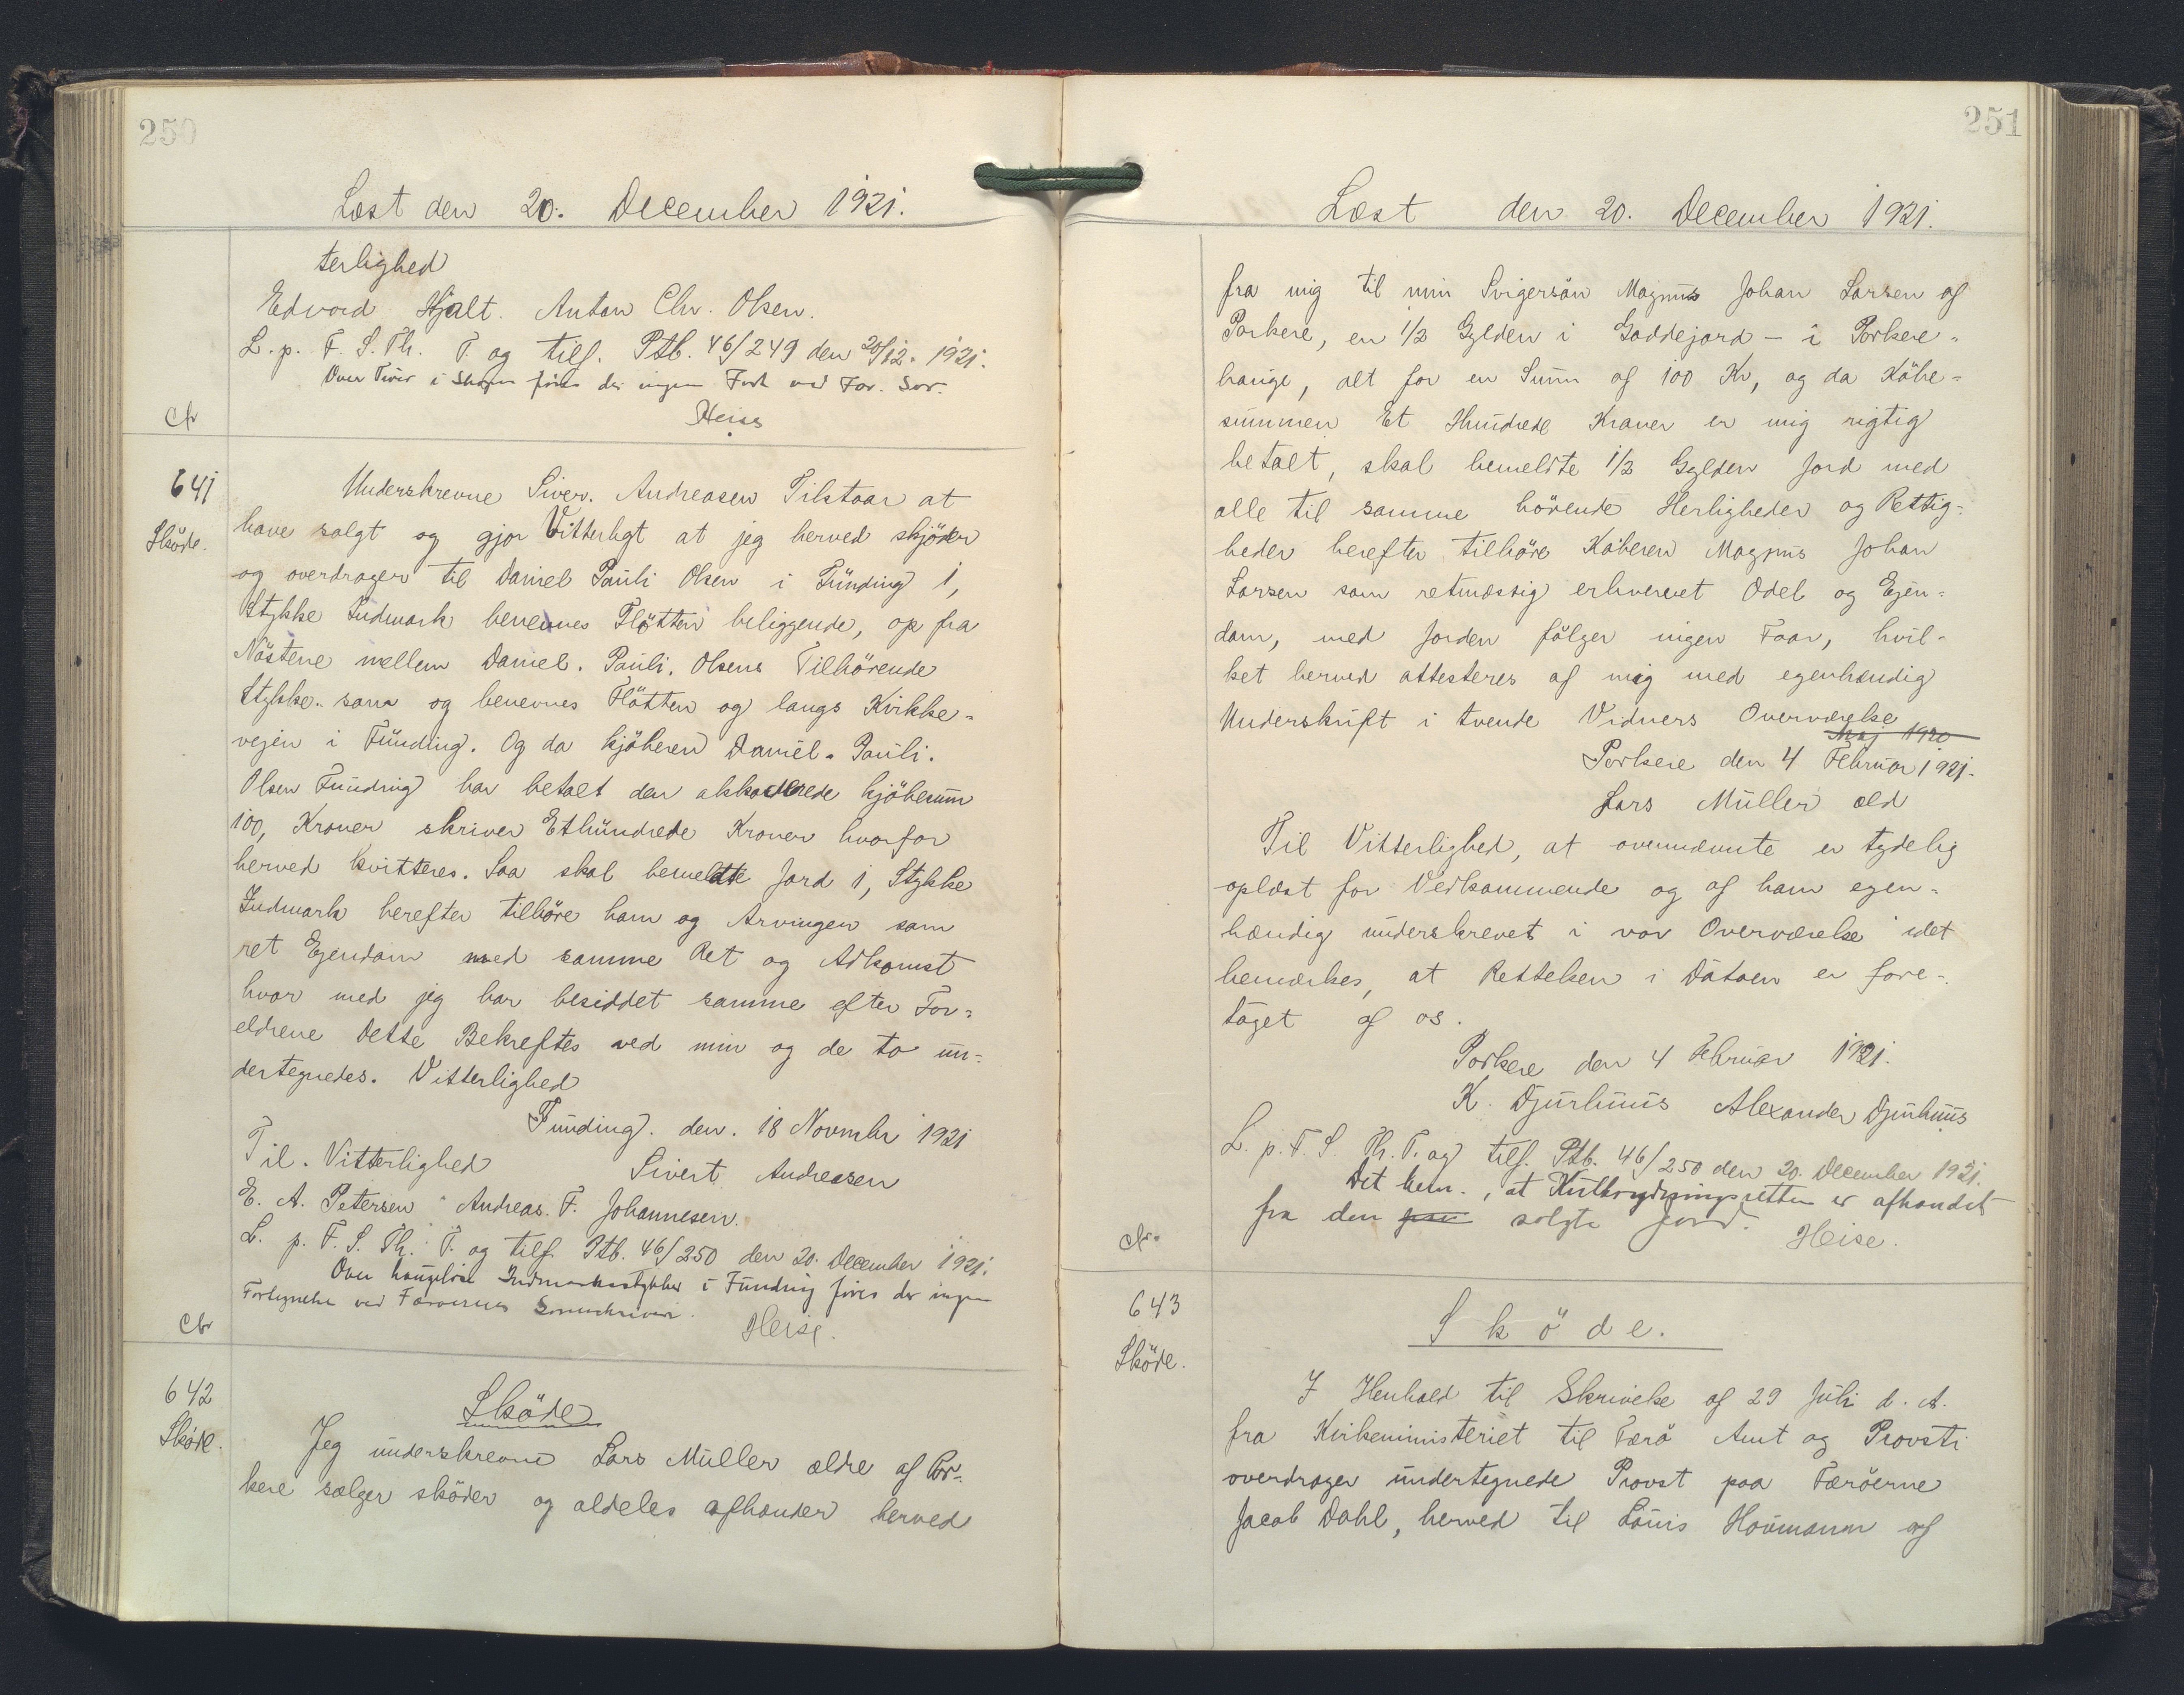 250
Læst den 20. December 1921.
terlighed
Edvard Hjalt. Anton Chr. Olsen.
L. p. F. S. Th. T. og tilf. Ptb. 46/249 den 20/12. 1921.
Over i føres der ingen Fort ved Fær. Sor.
Heise
Cfr
641
Skøde.
Underskrevne Siver. Andreasen Tilstaar at
have solgt og gjør Vitterligt at jeg herved skjøder
og overdrager til Daniel Pauli Olsen i Funding 1,
Stykke Indmark benevnes Fløtten beliggende, op fra
Nøstene mellem Daniel. Pauli. Olsens Tilhørende
Stykke. som og benevnes Fløtten og langs Kirkke-
vejen i Funding. Og da kjøberen Daniel. Pauli.
Olsen Funding har betalt den akkorderede kjøbesum
100, Kroner skriver Ethundrede Kroner hvorfor
herved kvitteres. Saa skal bemeldte Jord 1, Stykke
Indmark herefter tilhøre ham og Arvingen som
ret Ejendom med samme Ret og Adkomst
hvor med jeg har besiddet samme efter For-
eldrene Dette Bekreftes ved min og de to un-
dertegnedes. Vitterlighed
Funding. den. 18 Novmbr 1921
Til. Vitterlighed Sivert Andreasen
E. A. Petersen Andreas. F. Johannesen.
L. p. F. S. Th. T. og tilf. Ptb. 46/250 den 20. December 1921.
Over haugeløse Indmarksstykker i Funding føres der ingen
Fortegnelse ved Færøernes Sorenskriveri.
Heise.
Cfr
642
Skøde.
Skøde
Jeg underskrevne Lars Müller ældre af Por-
kere sælger skøder og aldeles afhænder herved
251
Læst den 20. December 1921.
fra mig til min Svigersøn Magnus Johan Larsen af
Porkere, en 1/2 Gylden i Gaddejord - i Porkere-
hauge, alt for en Sum af 100 Kr, og da Købe-
summen Et Hundrede Kroner er mig rigtig
betalt, skal bemeldte 1/2 Gylden Jord med
alle til samme hørende Herligheder og Rettig-
heder herefter tilhøre Køberen Magnus Johan
Larsen som retmæssig erhvervet Odel og Ejen-
dom, med Jorden følger ingen Faar, hvil-
ket herved attesteres af mig med egenhændig
Underskrift i tvende Vidners Overværelse
Maj 1920
Porkere den 4 Februar 1921.
Lars Müller æld
Til Vitterlighed, at ovennævnte er tydelig
oplæst for Vedkommende og af ham egen-
hændig underskrevet i vor Overværelse idet
bemærkes, at Rettelsen i Datoen er fore-
taget af os.
Porkere den 4 Februar 1921.
K. Djurhuus Alexander Djurhuus
L. p. F. S. Th. T. og tilf. Ptb. 46/250 den 20. December 1921.
Det bem., at Kulbrydningsretten er afhændet
fra den solgte Jord.
Heise.
Cfr.
643
Skøde.
Skøde.
I Henhold til Skrivelse af 29 Juli d. A.
fra Kirkeministeriet til Færø Amt og Provsti
overdrager undertegnede Provst paa Færøerne
Jacob Dahl, herved til Louis Houmann af